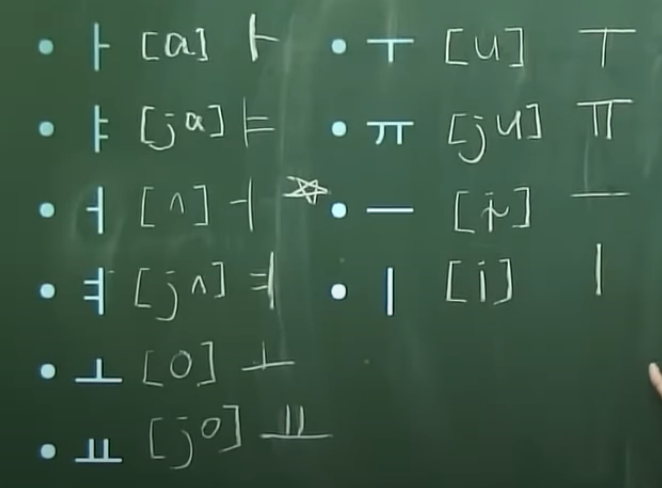 • ㅏ [a] ㅏ
• ㅑ [ja] ㅑ
• ㅓ [ʌ] ㅓ ☆
• ㅕ [jʌ] ㅕ
• ㅗ [o] ㅗ
• ㅛ [jo] ㅛ
• ㅜ [u] ㅜ
• ㅠ [ju] ㅠ
• ㅡ [ɨ] ㅡ
• ㅣ [i] ㅣ